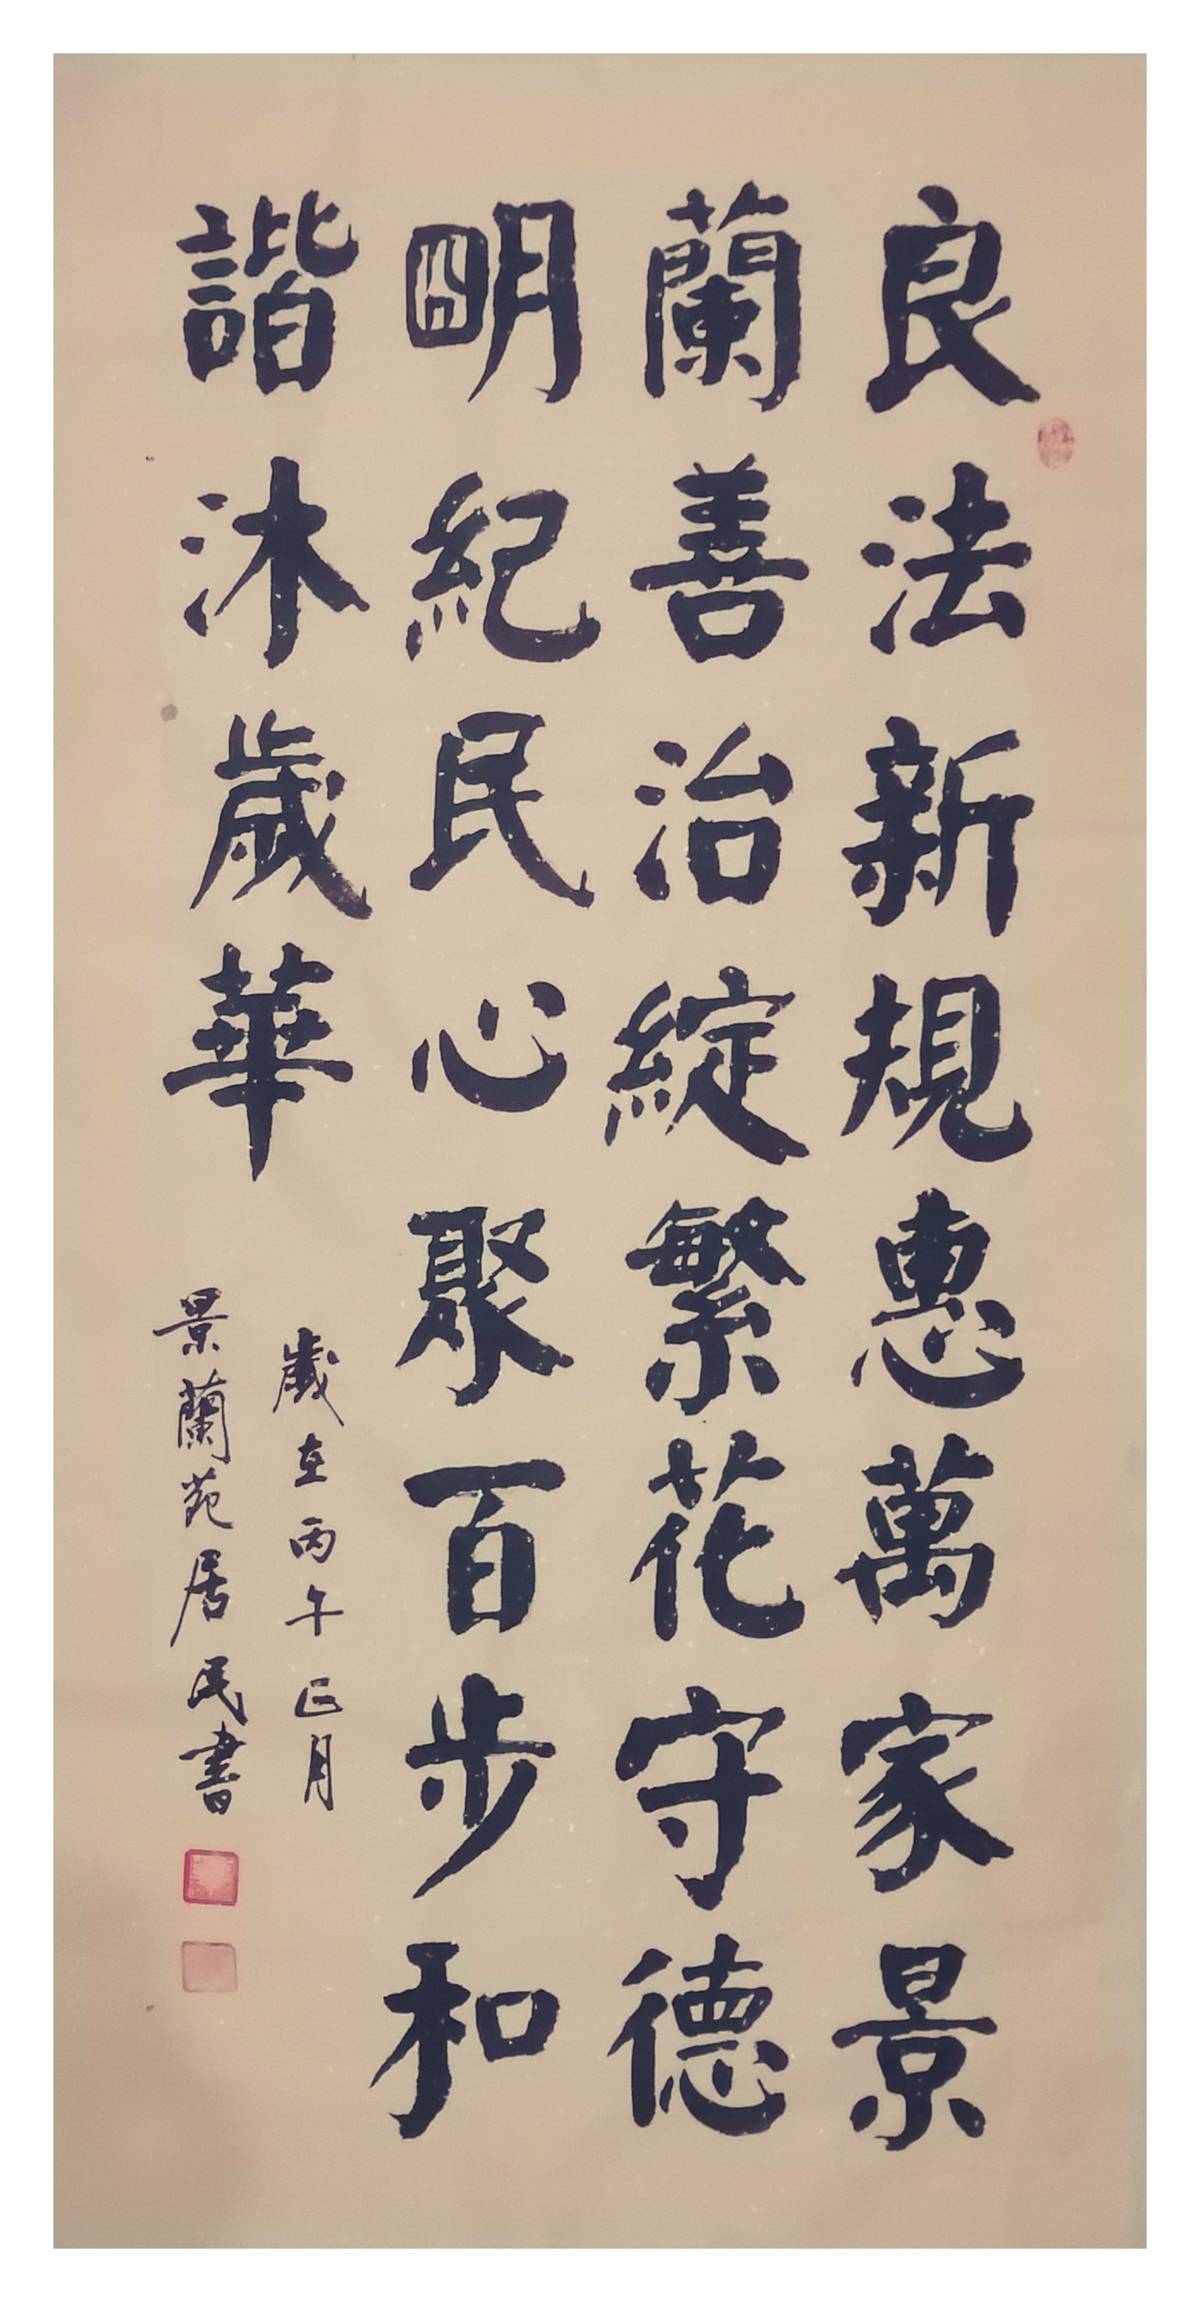 良法新規惠萬家景
蘭善治綻繁花守德
明紀民心聚百步和
諧沐歲華
歲在丙午正月
景蘭苑居民書